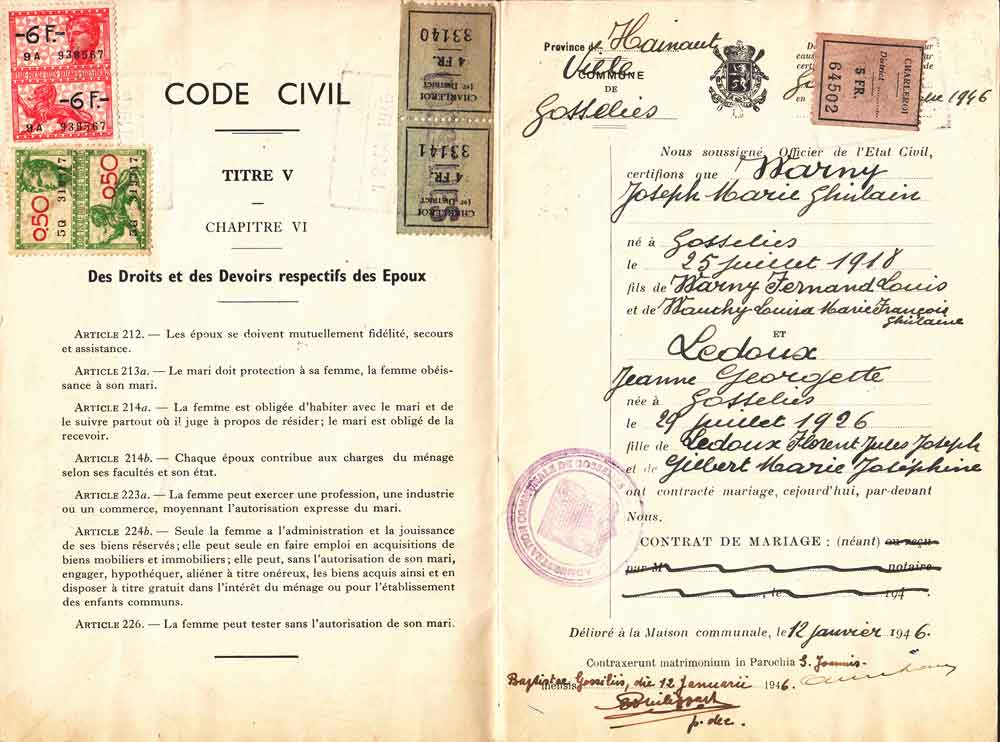 -6 F.-
9A 938567
-6 F.-
9A 938567
0.50
0.50
33140
4 FR.
CHARLEROI
1er DISTRICT
33141
4 FR.
CHARLEROI
1er DISTRICT
CODE CIVIL
TITRE V
CHAPITRE VI
Des Droits et des Devoirs respectifs des Epoux
ARTICLE 212. — Les époux se doivent mutuellement fidélité, secours
et assistance.
ARTICLE 213a. — Le mari doit protection à sa femme, la femme obéis-
sance à son mari.
ARTICLE 214a. — La femme est obligée d'habiter avec le mari et de
le suivre partout où il juge à propos de résider; le mari est obligé de la
recevoir.
ARTICLE 214b. — Chaque époux contribue aux charges du ménage
selon ses facultés et son état.
ARTICLE 223a. — La femme peut exercer une profession, une industrie
ou un commerce, moyennant l'autorisation expresse du mari.
ARTICLE 224b. — Seule la femme a l'administration et la jouissance
de ses biens réservés; elle peut seule en faire emploi en acquisitions de
biens mobiliers et immobiliers; elle peut, sans l'autorisation de son mari,
engager, hypothéquer, aliéner à titre onéreux, les biens acquis ainsi et en
disposer à titre gratuit dans l'intérêt du ménage ou pour l'établissement
des enfants communs.
ARTICLE 226. — La femme peut tester sans l'autorisation de son mari.
Province de Hainaut
Ville
COMMUNE
DE
Gosselies
CHARLEROI
District
5 FR.
64502
1946
Nous soussigné, Officier de l'Etat Civil,
certifions que Warny
Joseph Marie Ghislain
né à Gosselies
le 25 juillet 1918
fils de Warny Fernand Louis
et de Wauthy Louisa Marie François
Ghislaine
ET
Ledoux
Jeanne Georgette
née à Gosselies
le 29 juillet 1926
fille de Ledoux Florent Jules Joseph
et de Gilbert Marie Joséphine
ont contracté mariage, cejourd'hui, par-devant
Nous.
CONTRAT DE MARIAGE : (néant) ou reçu
par M notaire
, le 194 .
ADMINISTRATION COMMUNALE DE GOSSELIES
Délivré à la Maison communale, le 12 janvier 1946.
Contraxerunt matrimonium in Parochia S. Joannis-
Baptistae Gosselies, die 12 Januarii 1946
mensis
p. dec.